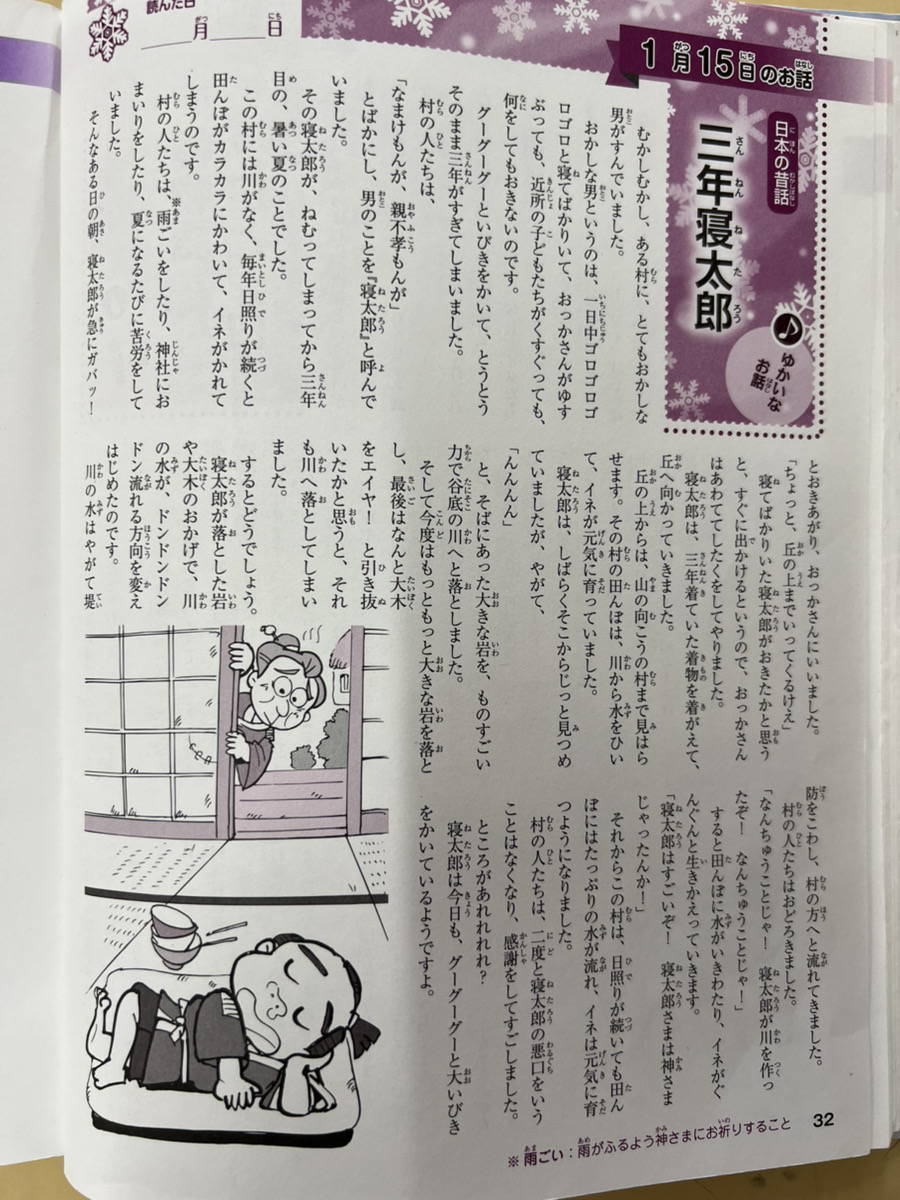 読んだ日
月 日
1月15日のお話
日本の昔話
三年寝太郎
ゆかいな
お話
むかしむかし、ある村に、とてもおかしな
男がすんでいました。
おかしな男というのは、一日中ゴロゴロゴ
ロゴロと寝てばかりいて、おっかさんがゆす
ぶっても、近所の子どもたちがくすぐっても、
何をしてもおきないのです。
グーグーグーといびきをかいて、とうとう
そのまま三年がすぎてしまいました。
村の人たちは、
「なまけもんが、親不孝もんが」
とばかにし、男のことを『寝太郎』と呼んで
いました。
その寝太郎が、ねむってしまってから三年
目の、暑い夏のことでした。
この村には川がなく、毎年日照りが続くと
田んぼがカラカラにかわいて、イネがかれて
しまうのです。
村の人たちは、※雨ごいをしたり、神社にお
まいりをしたり、夏になるたびに苦労をして
いました。
そんなある日の朝、寝太郎が急にガバッ！
とおきあがり、おっかさんにいいました。
「ちょっと、丘の上までいってくるけえ」
寝てばかりいた寝太郎がおきたかと思う
と、すぐに出かけるというので、おっかさん
はあわててしたくをしてやりました。
寝太郎は、三年着ていた着物を着がえて、
丘へ向かっていきました。
丘の上からは、山の向こうの村まで見はら
せます。その村の田んぼは、川から水をひい
て、イネが元気に育っていました。
寝太郎は、しばらくそこからじっと見つめ
ていましたが、やがて、
「んんんん」
と、そばにあった大きな岩を、ものすごい
力で谷底の川へと落としました。
そして今度はもっともっと大きな岩を落と
し、最後はなんと大木
をエイヤ！　と引き抜
いたかと思うと、それ
も川へ落としてしまい
ました。
するとどうでしょう。
寝太郎が落とした岩
や大木のおかげで、川
の水が、ドンドンドン
ドン流れる方向を変え
はじめたのです。
川の水はやがて堤
防をこわし、村の方へと流れてきました。
村の人たちはおどろきました。
「なんちゅうことじゃ！　寝太郎が川を作っ
たぞ！　なんちゅうことじゃ！」
すると田んぼに水がいきわたり、イネがぐ
んぐんと生きかえっていきます。
「寝太郎はすごいぞ！　寝太郎さまは神さま
じゃったんか！」
それからこの村は、日照りが続いても田ん
ぼにはたっぷりの水が流れ、イネは元気に育
つようになりました。
村の人たちは、二度と寝太郎の悪口をいう
ことはなくなり、感謝をしてすごしました。
ところがあれれれれ？
寝太郎は今日も、グーグーグーと大いびき
をかいているようですよ。
※雨ごい：雨がふるよう神さまにお祈りすること
32